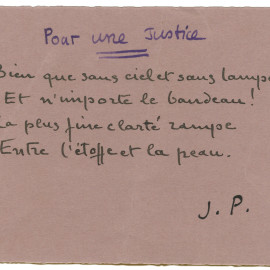 Pour une Justice
Bien que sans ciel et sans lampe
Et n'importe le bandeau!
La plus fine clarté rampe
Entre l'étoffe et la peau.
J. P.